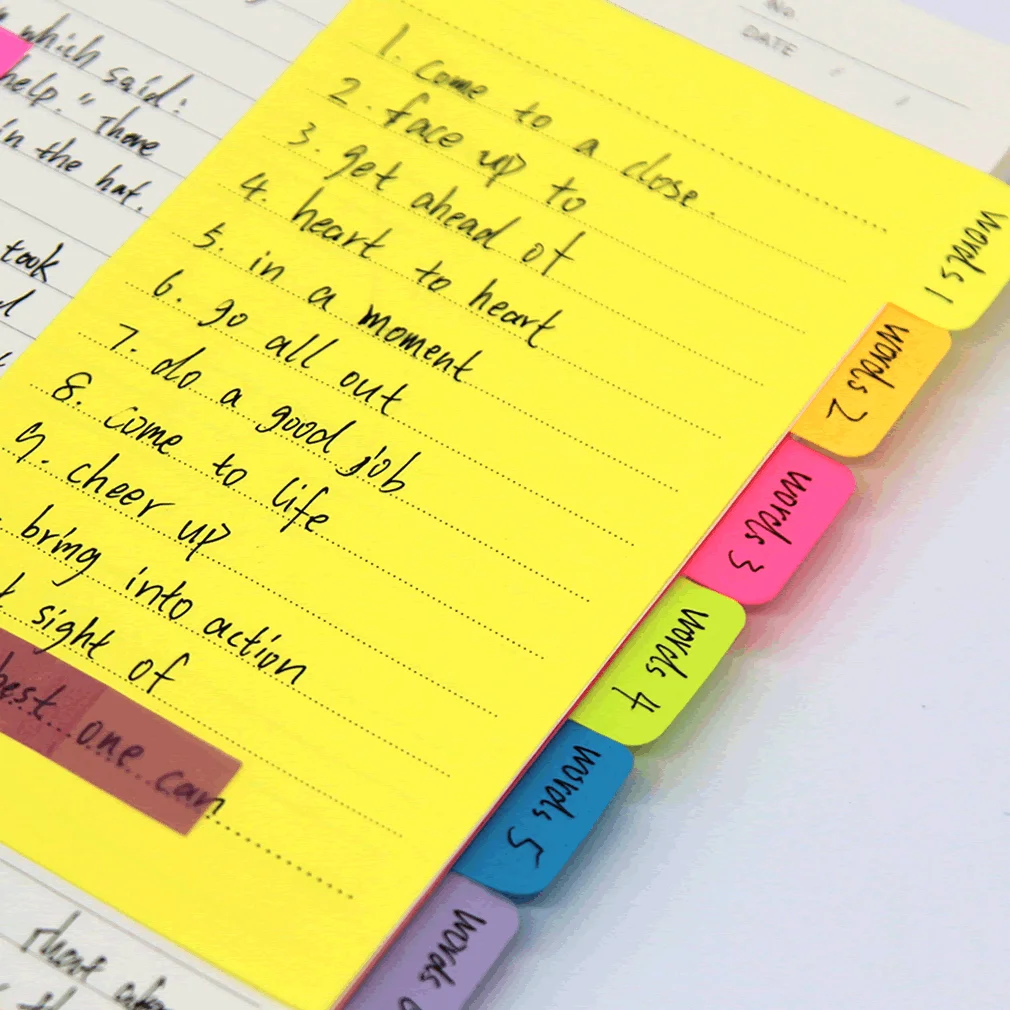 which said:
help." There
in the hat.
took
No
DATE
1. Come to a close.
2. face up to
3. get ahead of
4. heart to heart
5. in a moment
6. go all out
7. do a good job
8. come to life
9. cheer up
bring into action
sight of
best one can
words 1
words 2
words 3
words 4
words 5
words
that